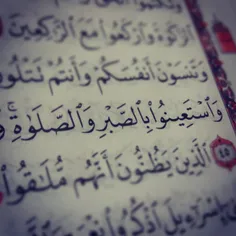 الزَّكَوٰةَ وَارْكَعُوا مَعَ الرَّٰكِعِينَ
وَتَنسَوْنَ أَنفُسَكُمْ وَأَنتُمْ تَتْلُونَ
وَاسْتَعِينُوا بِالصَّبْرِ وَالصَّلَوٰةِ ۚ
٤٥ الَّذِينَ يَظُنُّونَ أَنَّهُم مُّلَٰقُوا
اذْكُرُوا